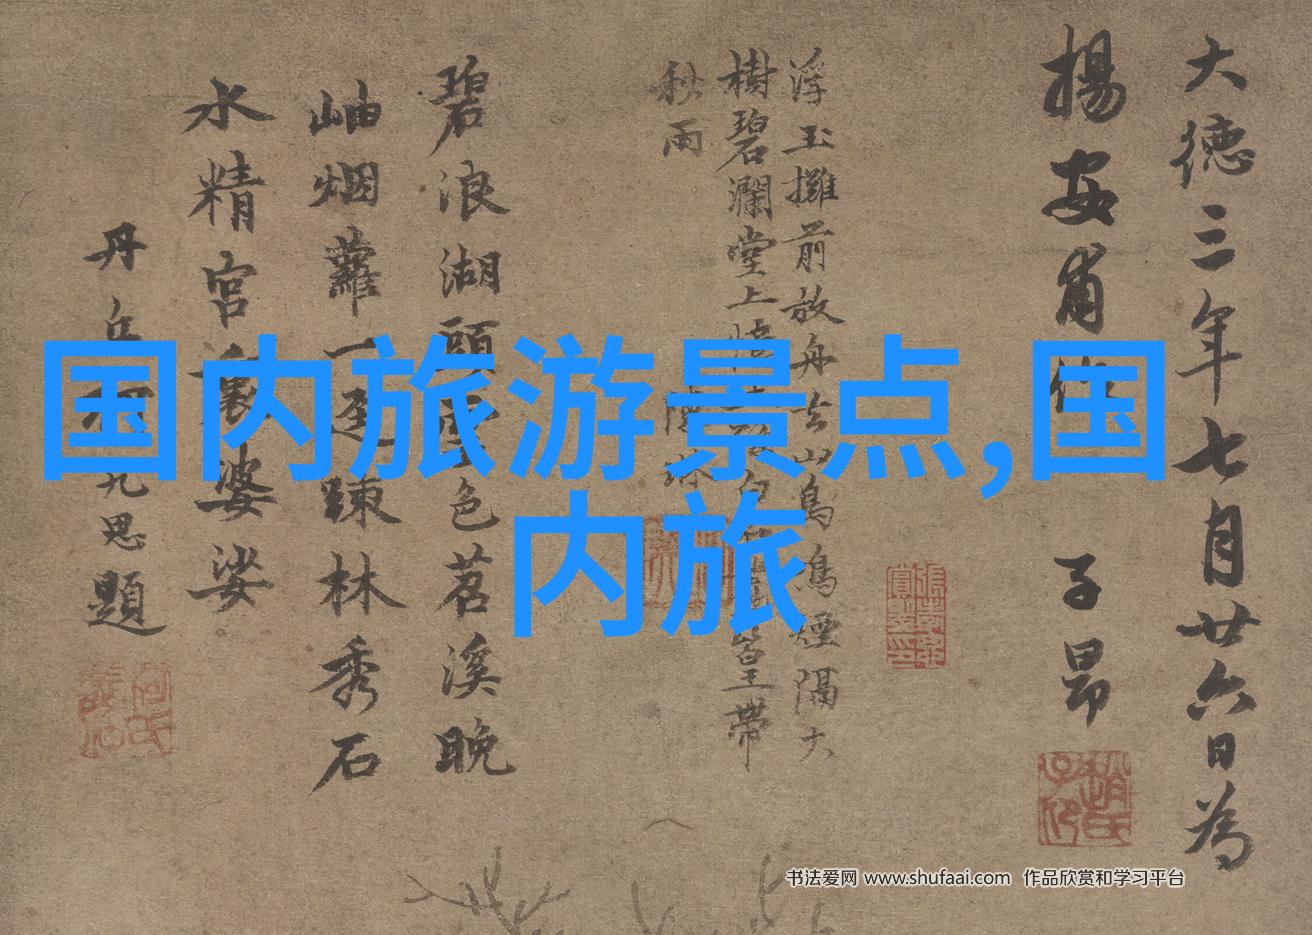 国内旅游景点,国
内旅
大德三年七月廿六日為
揚安甫作 子昂
浮玉攤前放舟去山鳥鳴煙隔大
樹碧瀾堂上皇帶
秋雨
碧浪湖頭色苕溪晚
岫烟蘿一逕踈林秀石
水精宮裏婆娑
丹丘九思題
书法爱网 www.shufaai.com 作品欣赏和学习平台